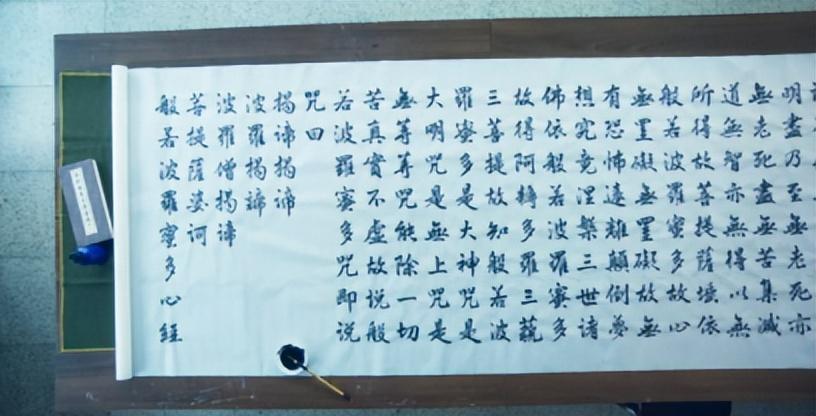 明盡乃至無老死亦
無老死盡無苦集滅
道無智亦無得以無
所得故菩提薩埵依
般若波羅蜜多故心
無罣礙無罣礙故無
有恐怖遠離顛倒夢
想究竟涅槃三世諸
佛依般若波羅蜜多
故得阿耨多羅三藐
三菩提故知般若波
羅蜜多是大神咒是
大明咒是無上咒是
無等等咒能除一切
苦真實不虛故说般
若波羅蜜多咒即说
咒曰
揭諦揭諦
波羅揭諦
波羅僧揭諦
菩提薩婆訶
般若波羅蜜多心經